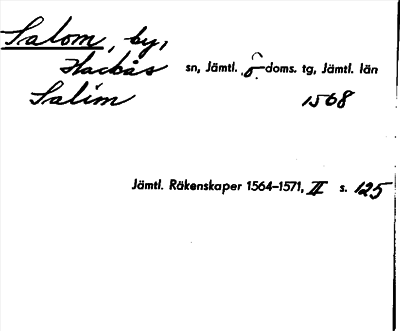 Salom, by,
Hackås sn, Jämtl. ö doms. tg, Jämtl. län
Salim 1568
Jämtl. Räkenskaper 1564–1571, II s. 125